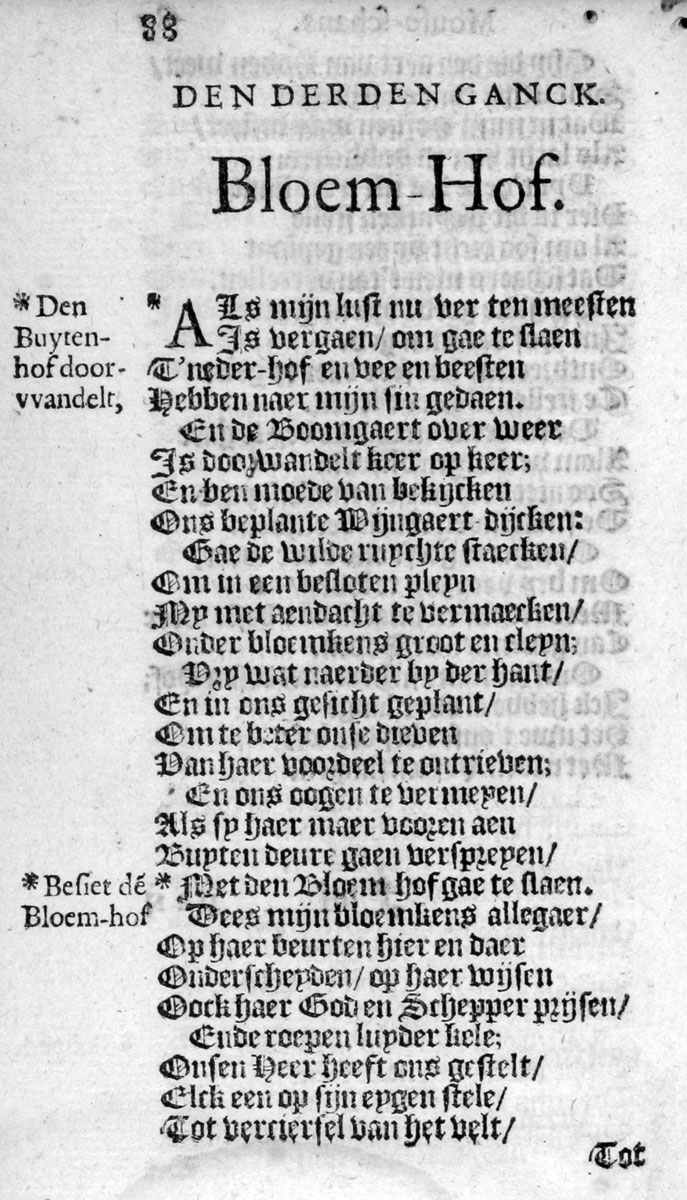 88
DEN DERDEN GANCK.
Bloem-Hof.
* Den
Buyten-
hof door-
vvandelt,
* ALs mijn lust nu ver ten meesten
Is vergaen/ om gae te slaen
T'neder-hof en vee en beesten
Hebben naer mijn sin gedaen.
En de Boomgaert over weer
Is doorwandelt keer op keer;
En ben moede van bekijcken
Ons beplante Wijngaert-dijcken:
Gae de wilde ruychte staecken/
Om in een besloten pleyn
My met aendacht te vermaecken/
Onder bloemkens groot en cleyn;
Vry wat naerder by der hant/
En in ons gesicht geplant/
Om te beter onse dieven
Van haer voordeel te ontrieven;
En ons oogen te vermeyen/
Als sy haer maer vooren aen
Buyten deure gaen verspreyen/
* Besiet dē
Bloem-hof
* Met den Bloem-hof gae te slaen.
Dees mijn bloemkens allegaer/
Op haer beurten hier en daer
Onderscheyden/ op haer wijsen
Oock haer God en Schepper prijsen/
Ende roepen luyder kele;
Onsen Heer heeft ons gestelt/
Elck een op sijn eygen stele/
Tot verciersel van het velt/
Tot